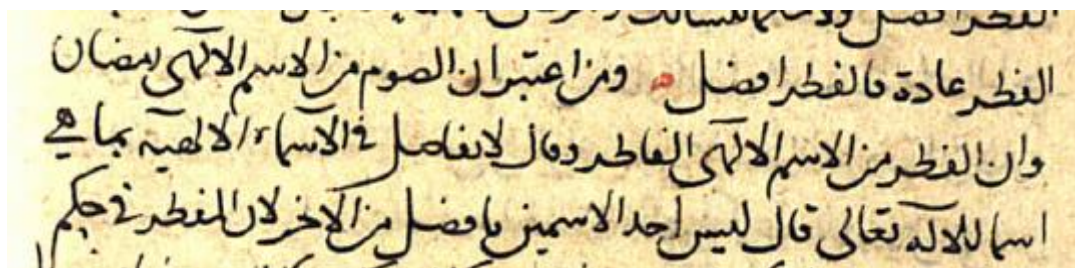 الفطر افضل
الفطر عادة فالفطر افضل ومن اعتبر ان الصوم من الاسم الالهى رمضان
وان الفطر من الاسم الالهى الفاطر وقال لا تفاضل في الاسماء الالهية بما هي
اسما للاله تعالى قال ليس احد الاسمين بافضل من الاخر لان المفطر في حكم